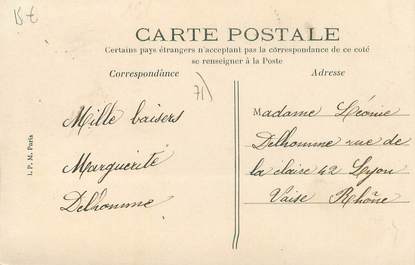 15 €
CARTE POSTALE
Certains pays étrangers n'acceptant pas la correspondance de ce coté
se renseigner à la Poste
Correspondance
Adresse
71)
Mille baisers
Marguerite
Delhomme
Madame Léonie
Delhomme rue de
la claire 42 Lyon
Vaise Rhône
I. P. M. Paris